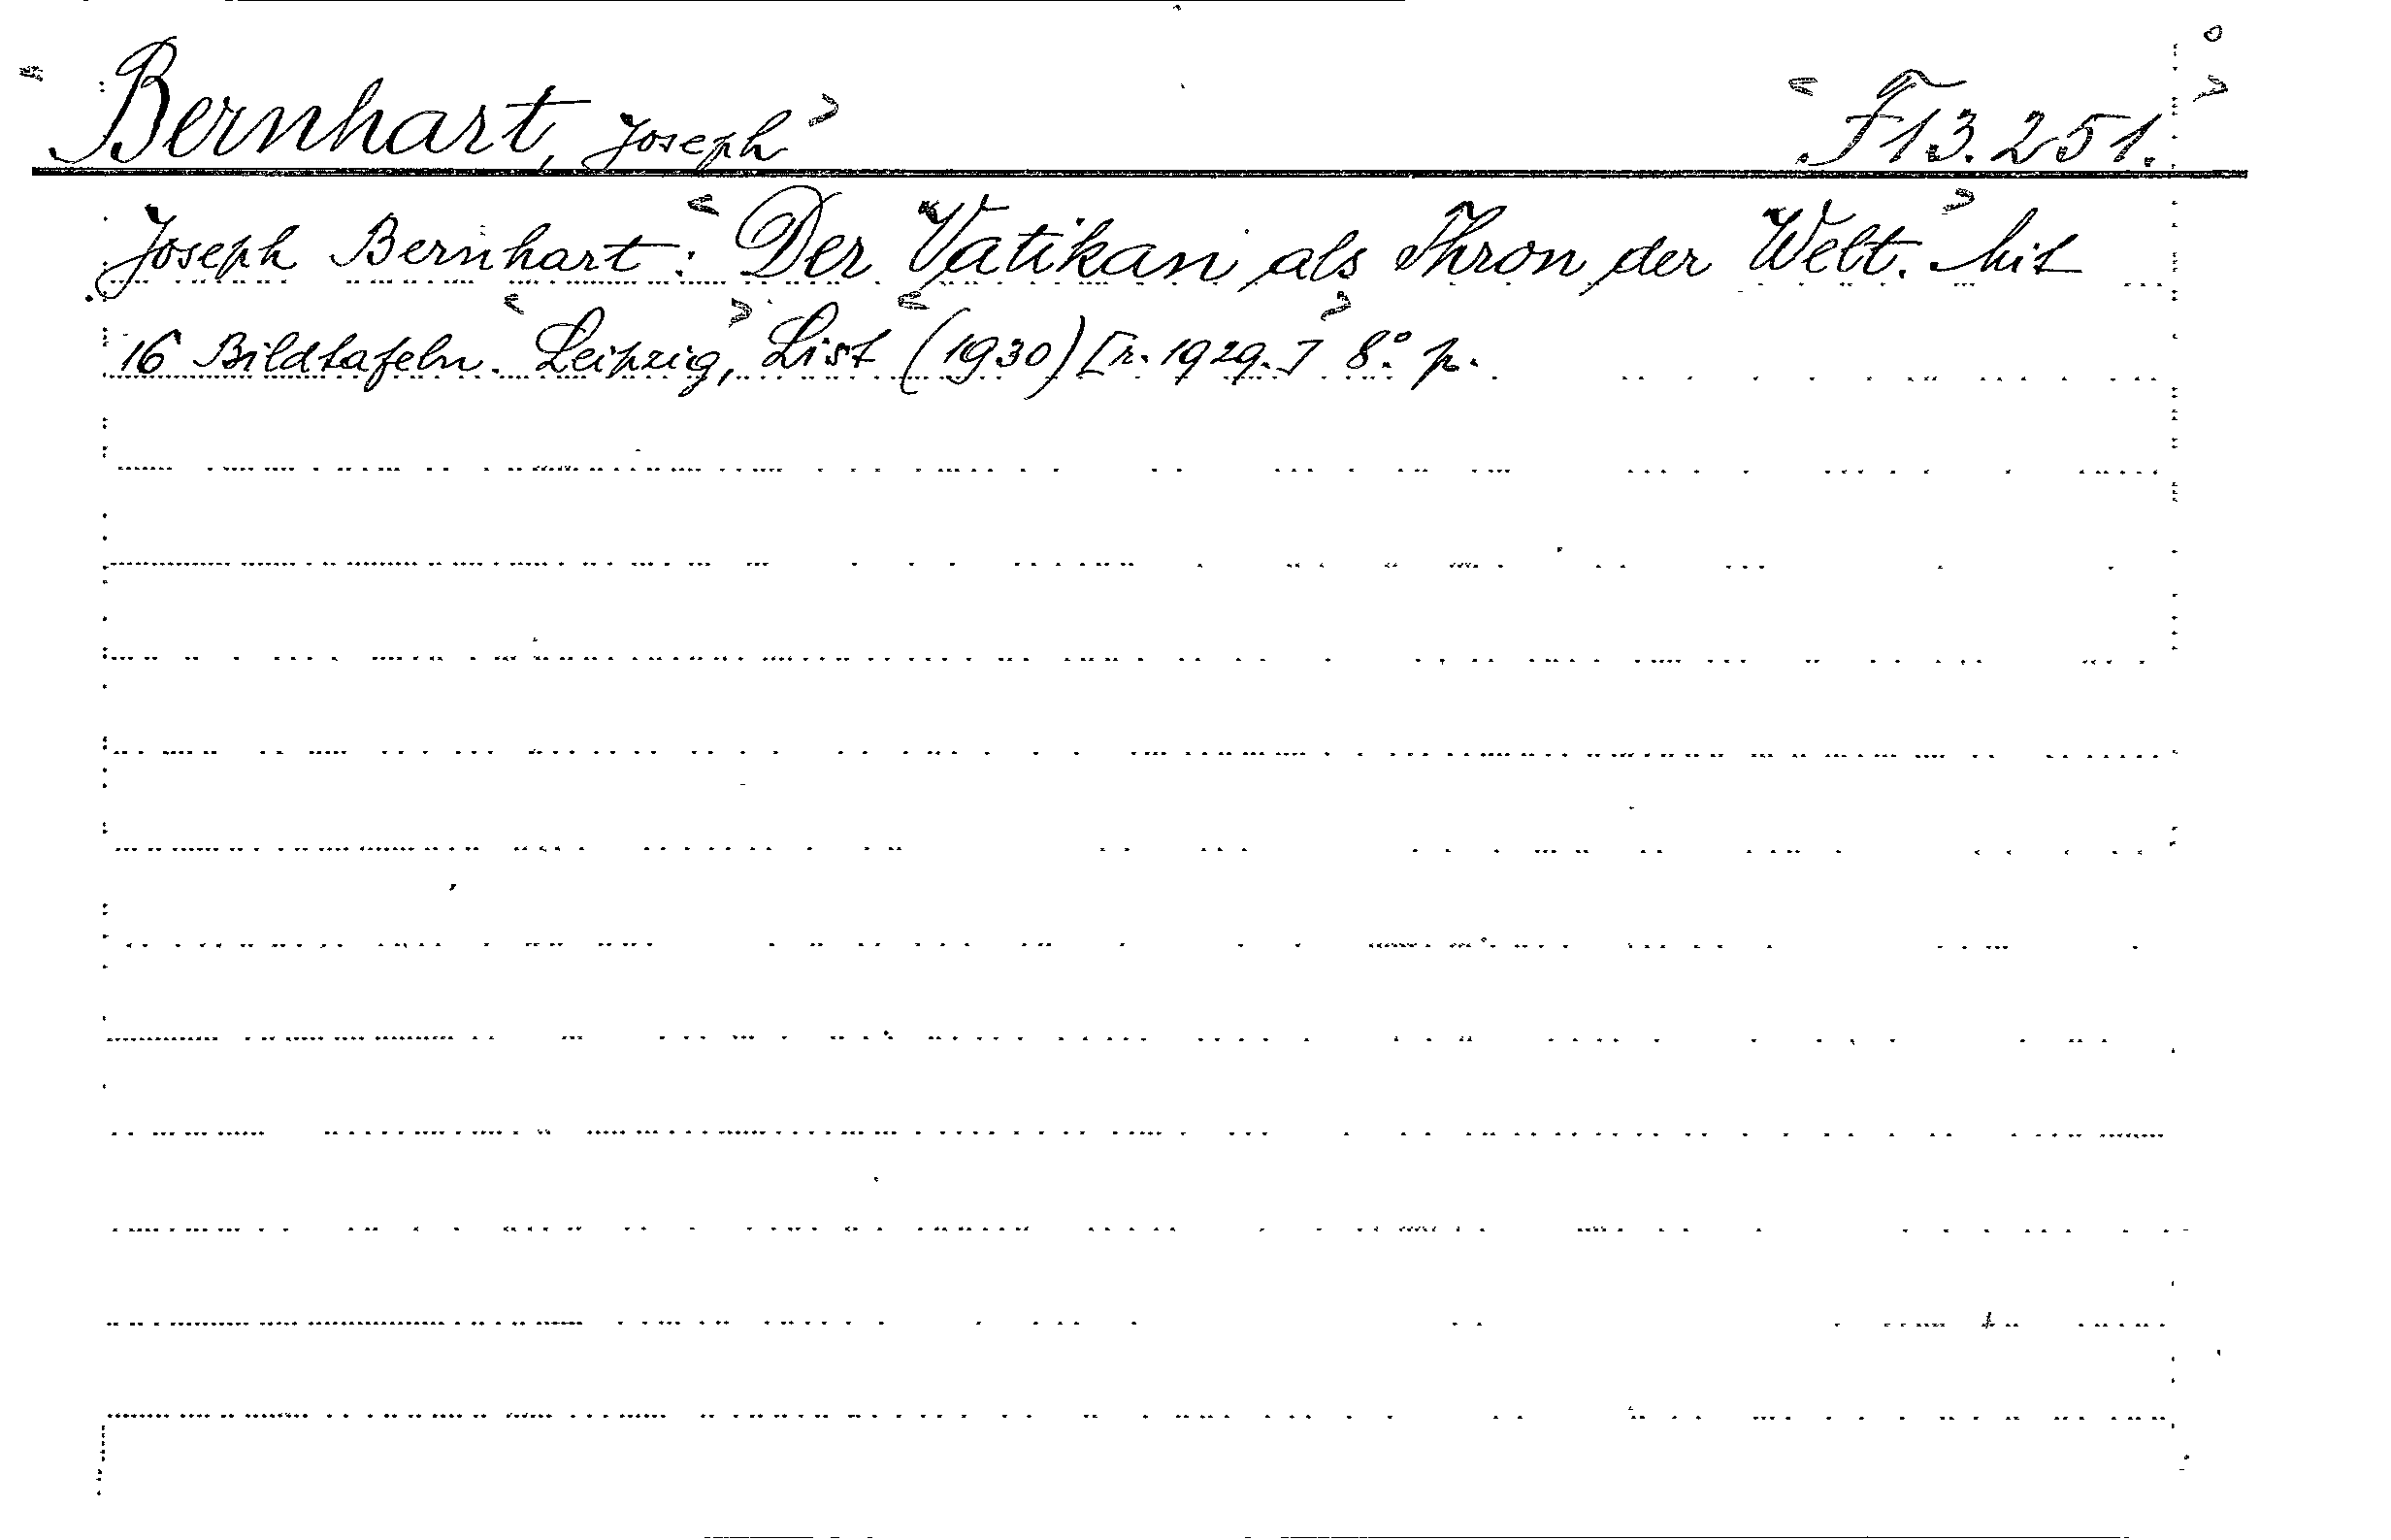 Bernhart, Joseph F13.251.
Joseph Bernhart: Der Vatikan als Thron der Welt. Mit
16 Bildtafeln. Leipzig, List (1930) [r. 1929.] 8° p.